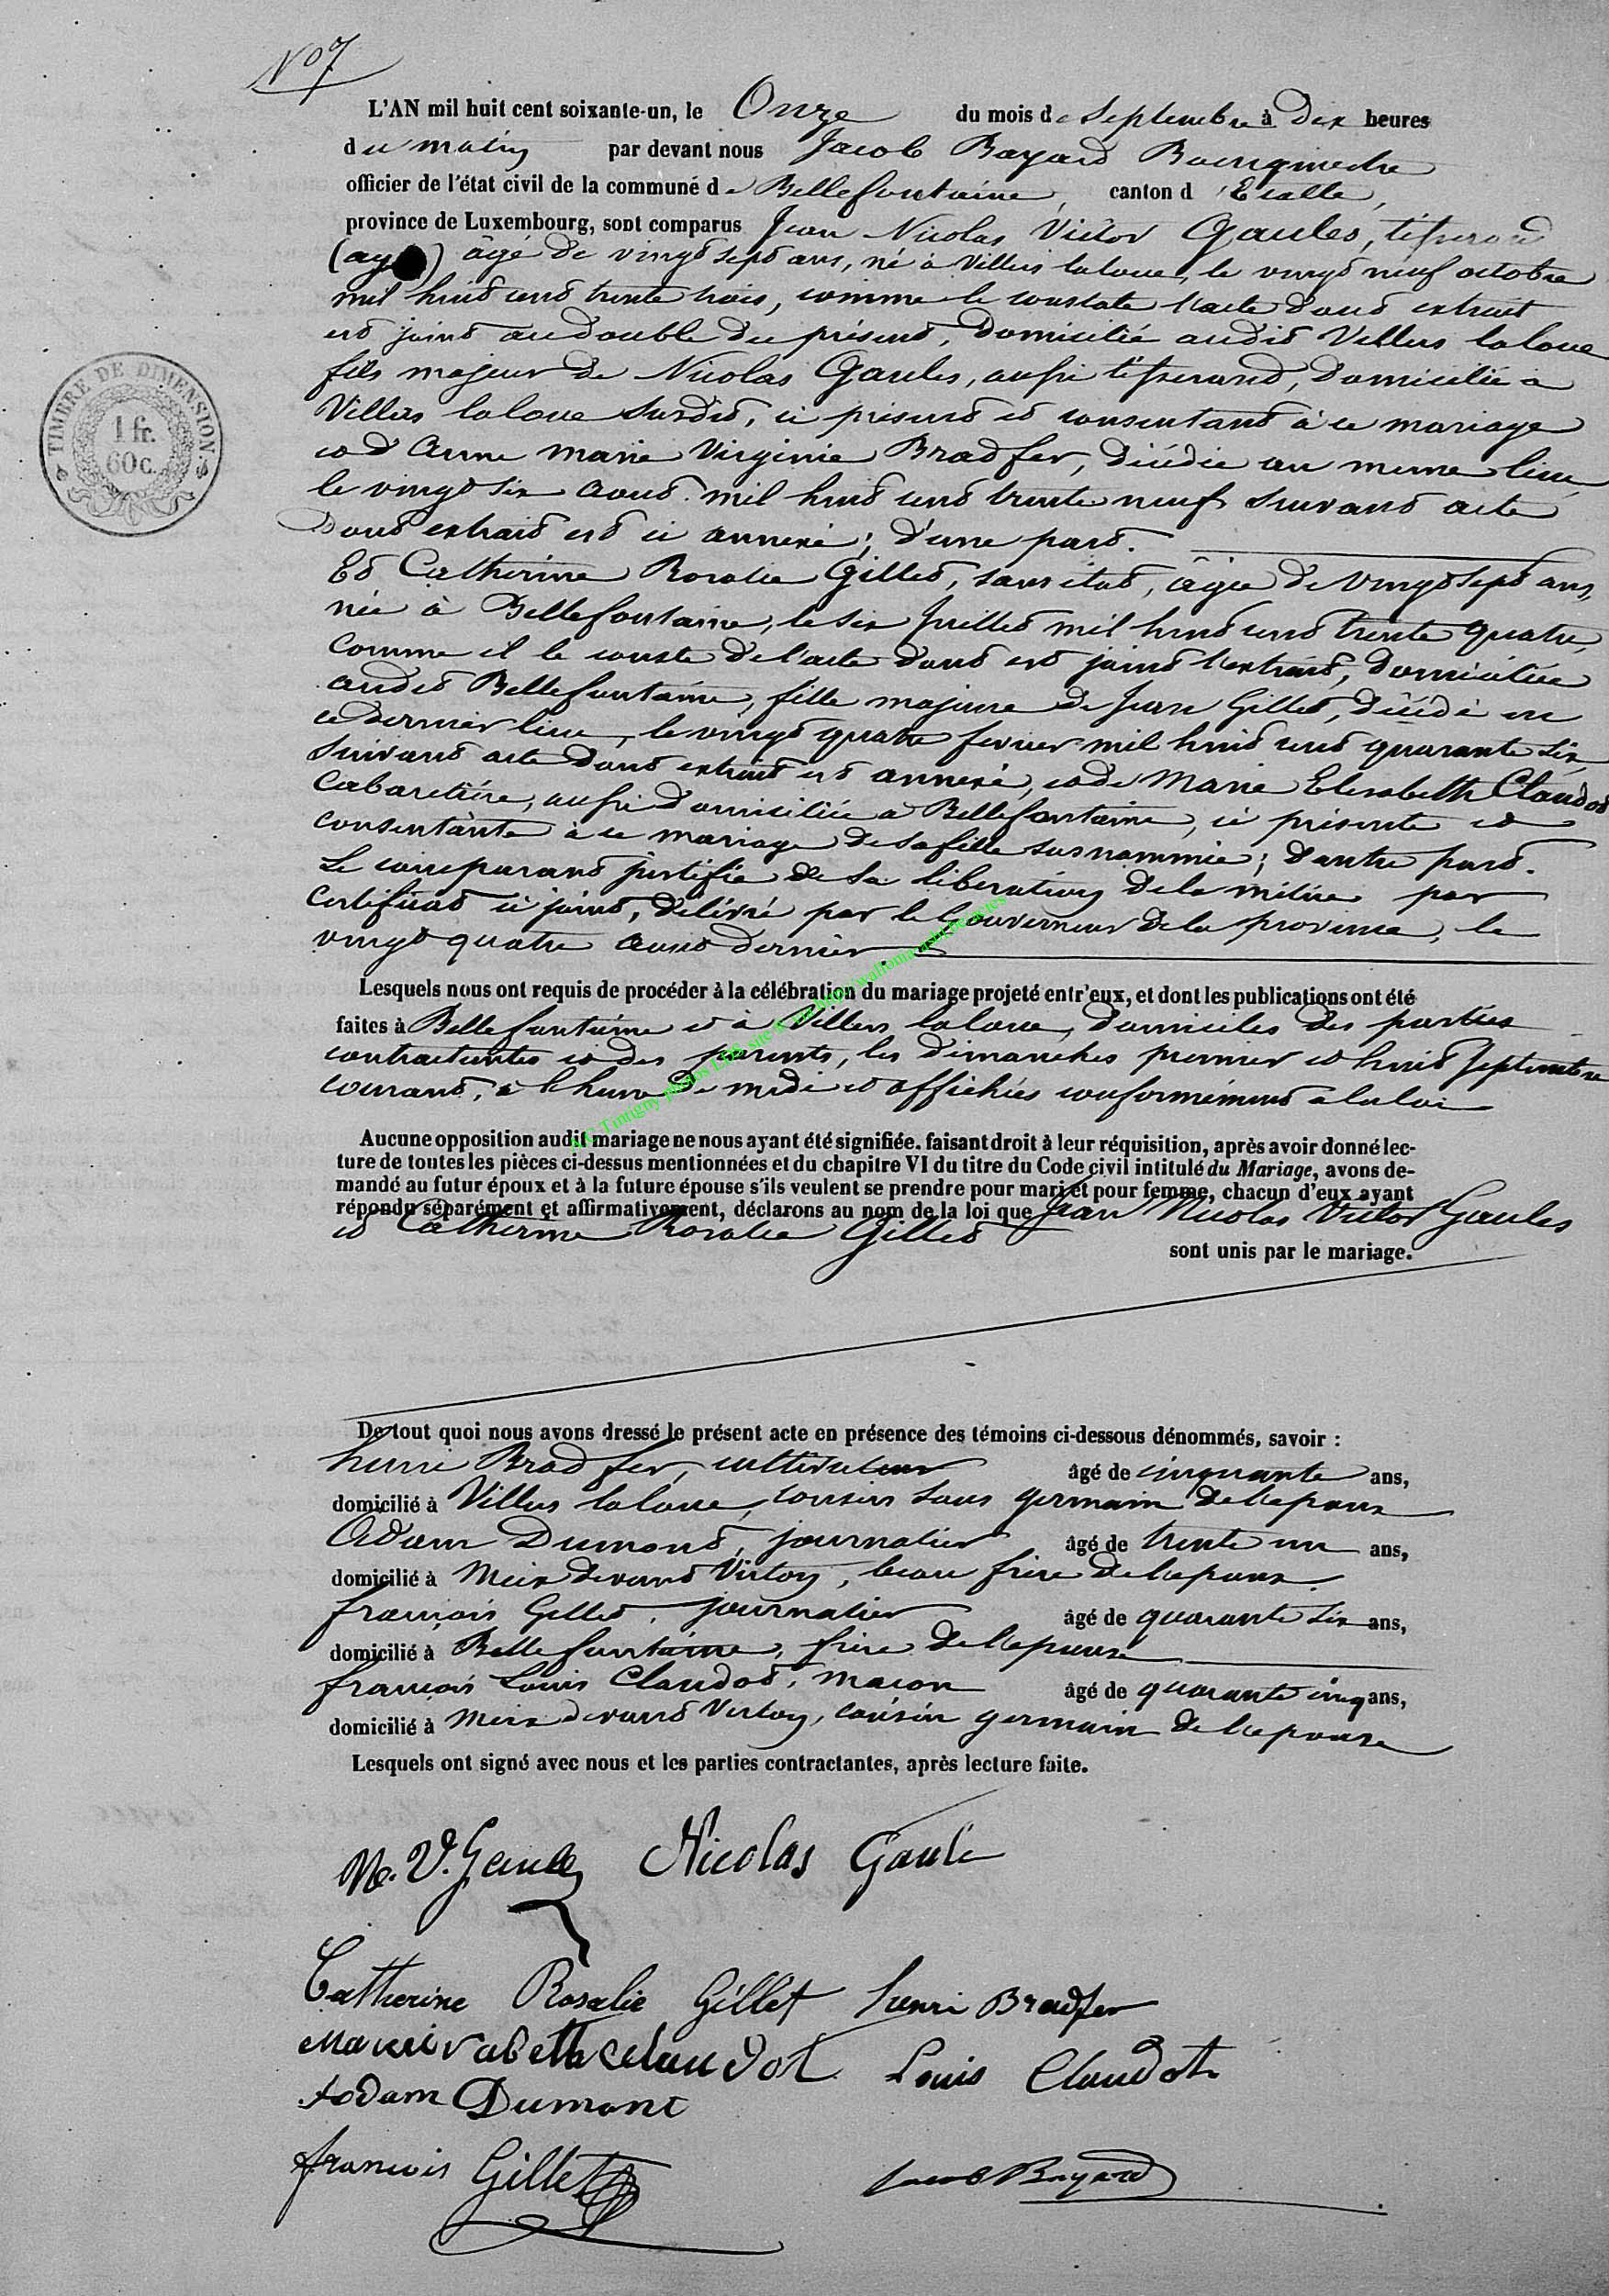 No 7
L'AN mil huit cent soixante-un, le Onze du mois de Septembre à Dix heures
du matin par devant nous Jacob Bayard Bourgmestre
officier de l'état civil de la commune de Bellefontaine, canton d'Etalle,
province de Luxembourg, sont comparus Jean Nicolas Victor Gaules, tisserand
âgé de vingt sept ans, né à Villers laloue, le vingt neuf octobre
mil huit cent trente trois, comme le constate l'acte dont extrait
est joint au double du présent, domicilié audit Villers laloue
fils majeur de Nicolas Gaules, aussi tisserand, domicilié à
Villers laloue susdit, ici présent et consentant à ce mariage
et d'Anne marie Virginie Bradfer, décédée au meme lieu
le vingt six Aout mil huit cent trente neuf suivant acte
dont extrait est ici annexé; d'une part.
Et Catherine Rosalie Gillet, sans état, âgée de vingt sept ans,
née à Bellefontaine, le six Juillet mil huit cent trente quatre,
comme il le conste de l'acte dont est joint l'extrait, domiciliée
audit Bellefontaine, fille majeure de Jean Gillet, décédé en
ce dernier lieu, le vingt quatre fevrier mil huit cent quarante six,
suivant acte dont extrait est annexé, et de Marie Elisabeth Claudot
Cabaretière, aussi domiciliée à Bellefontaine, ici présente et
consentante à ce mariage de sa fille susnommée; d'autre part.
Le comparant justifie de sa libération de la milice par
certificat ci joint, délivré par le Gouverneur de la province, le
vingt quatre aout dernier.
Lesquels nous ont requis de procéder à la célébration du mariage projeté entr'eux, et dont les publications ont été
faites à Bellefontaine et à Villers laloue, domiciles des parties
contractantes et des parents, les dimanches premier et huit Septembre
courant, à l'heure de midi et affichées conformément à la loi
Aucune opposition audit mariage ne nous ayant été signifiée. faisant droit à leur réquisition, après avoir donné lec-
ture de toutes les pièces ci-dessus mentionnées et du chapitre VI du titre du Code civil intitulé du Mariage, avons de-
mandé au futur époux et à la future épouse s'ils veulent se prendre pour mari et pour femme, chacun d'eux ayant
répondu séparément et affirmativement, déclarons au nom de la loi que Jean Nicolas Victor Gaules
et Catherine Rosalie Gillet
sont unis par le mariage.
De tout quoi nous avons dressé le présent acte en présence des témoins ci-dessous dénommés, savoir :
henri Bradfer, cultivateur âgé de cinquante ans,
domicilié à Villers laloue, cousin sous germain de l'epoux
Adam Dumont, journalier âgé de trente un ans,
domicilié à Meix devant Virton, beau frère de l'epoux.
françois Gillet, journalier âgé de quarante six ans,
domicilié à Bellefontaine, frère de l'epouse
françois Louis Claudot, macon âgé de quarante cinq ans,
domicilié à Meix devant Virton, cousin germain de l'epouse
Lesquels ont signé avec nous et les parties contractantes, après lecture faite.
N. V. Gaules Nicolas Gaule
Catherine Rosalie Gillet henri Bradfer
Claudot Louis Claudot
Adam Dumont
françois Gillet Jacob Bayard
TIMBRE DE DIMENSION
1 fr.
60 c.